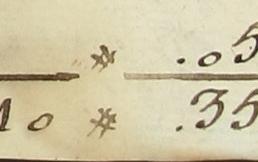 * .05
10 * .35